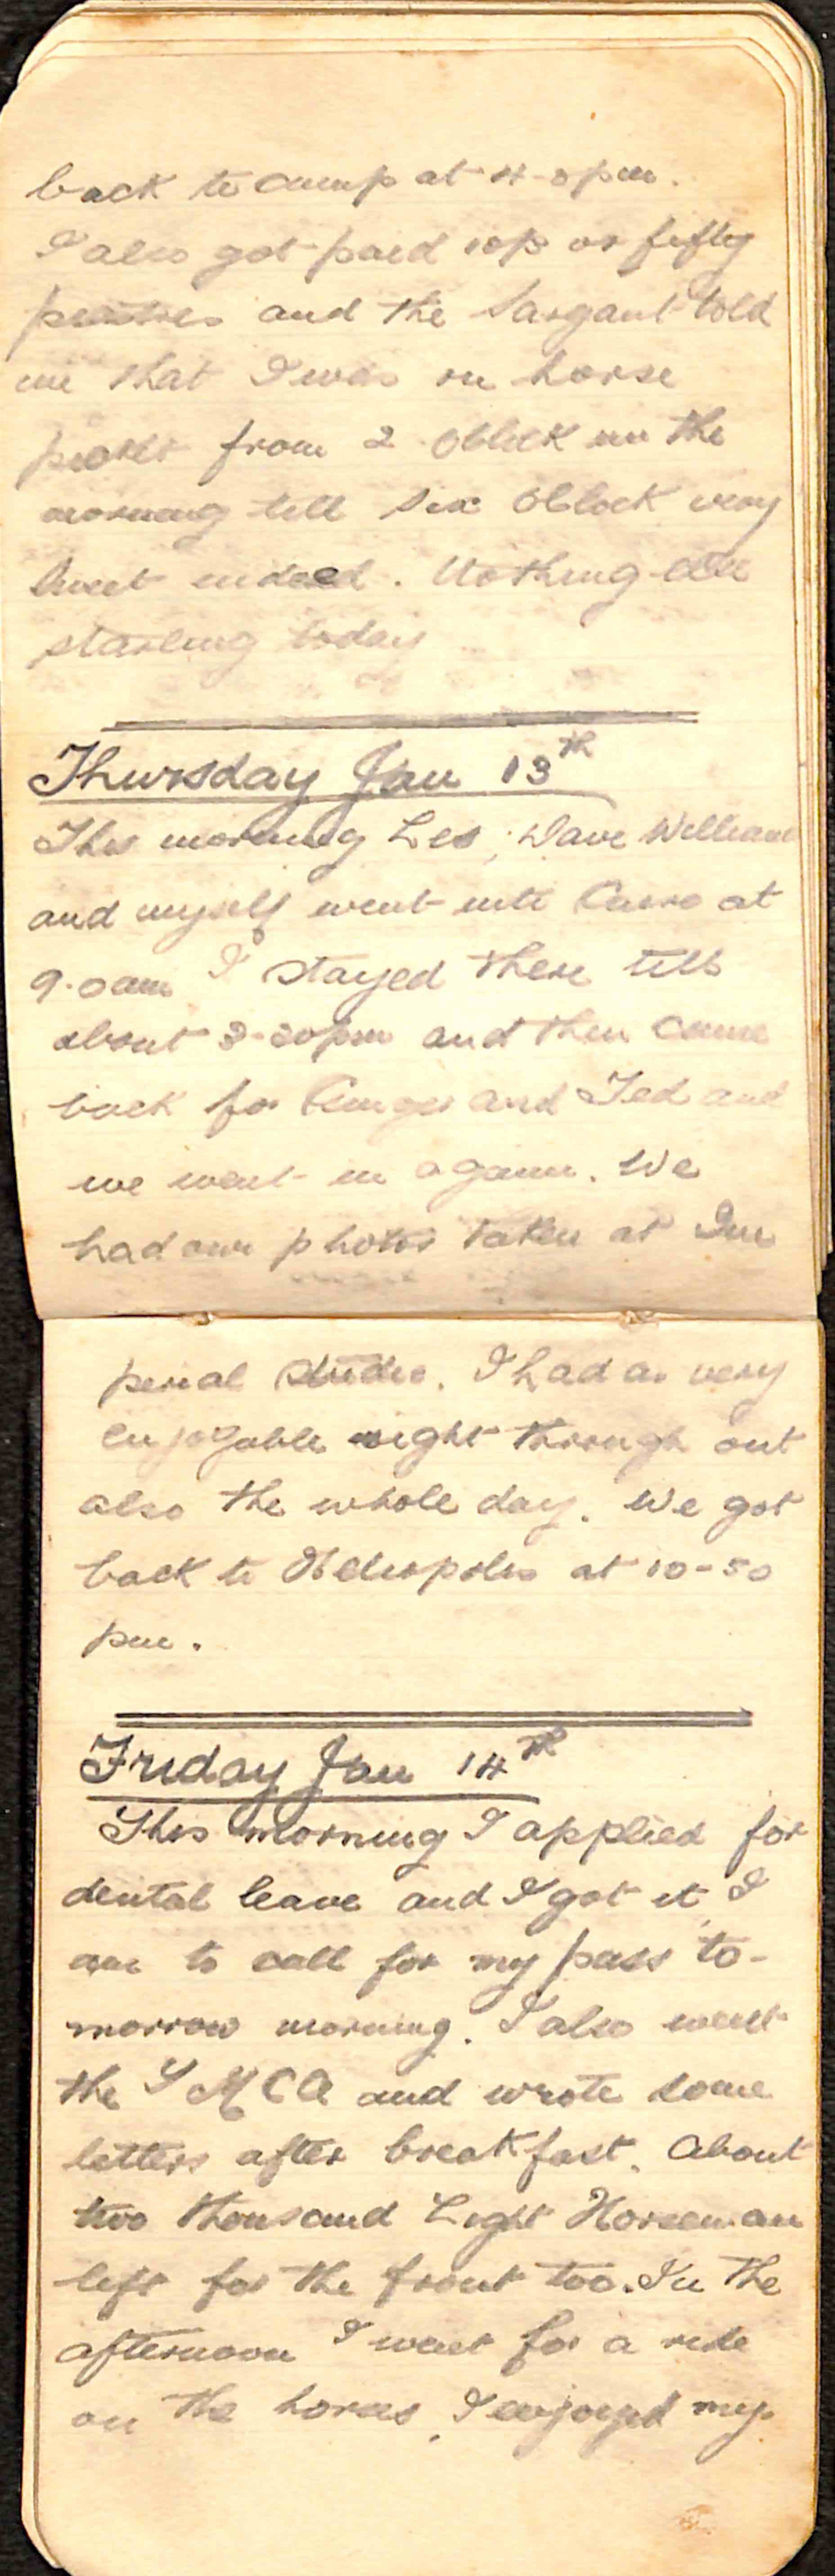 back to camp at 4-0pm.
I also got paid 10/- or fifty
piastres and the Sargant told
me that I was on horse
picket from 2 Oblock in the
morning till six Oblock very
sweet indeed. Nothing else
starling today
Thursday Jan 13th
This morning Les, Dave William
and myself went into Cairo at
9.0am I stayed there till
about 3-30pm and then came
back for and Ted and
we went in again. We
had our photos taken at Im
perial Studio. I had a very
enjoyable night through out
also the whole day. We got
back to Heliopolis at 10-50
pm.
Friday Jan 14th
This morning I applied for
dental leave and I got it, I
am to call for my pass to-
morrow morning. I also went
the YMCA and wrote some
letters after breakfast. About
two thousand Light Horseman
left for the front too. In the
afternoon I went for a ride
on the horses, I enjoyed my